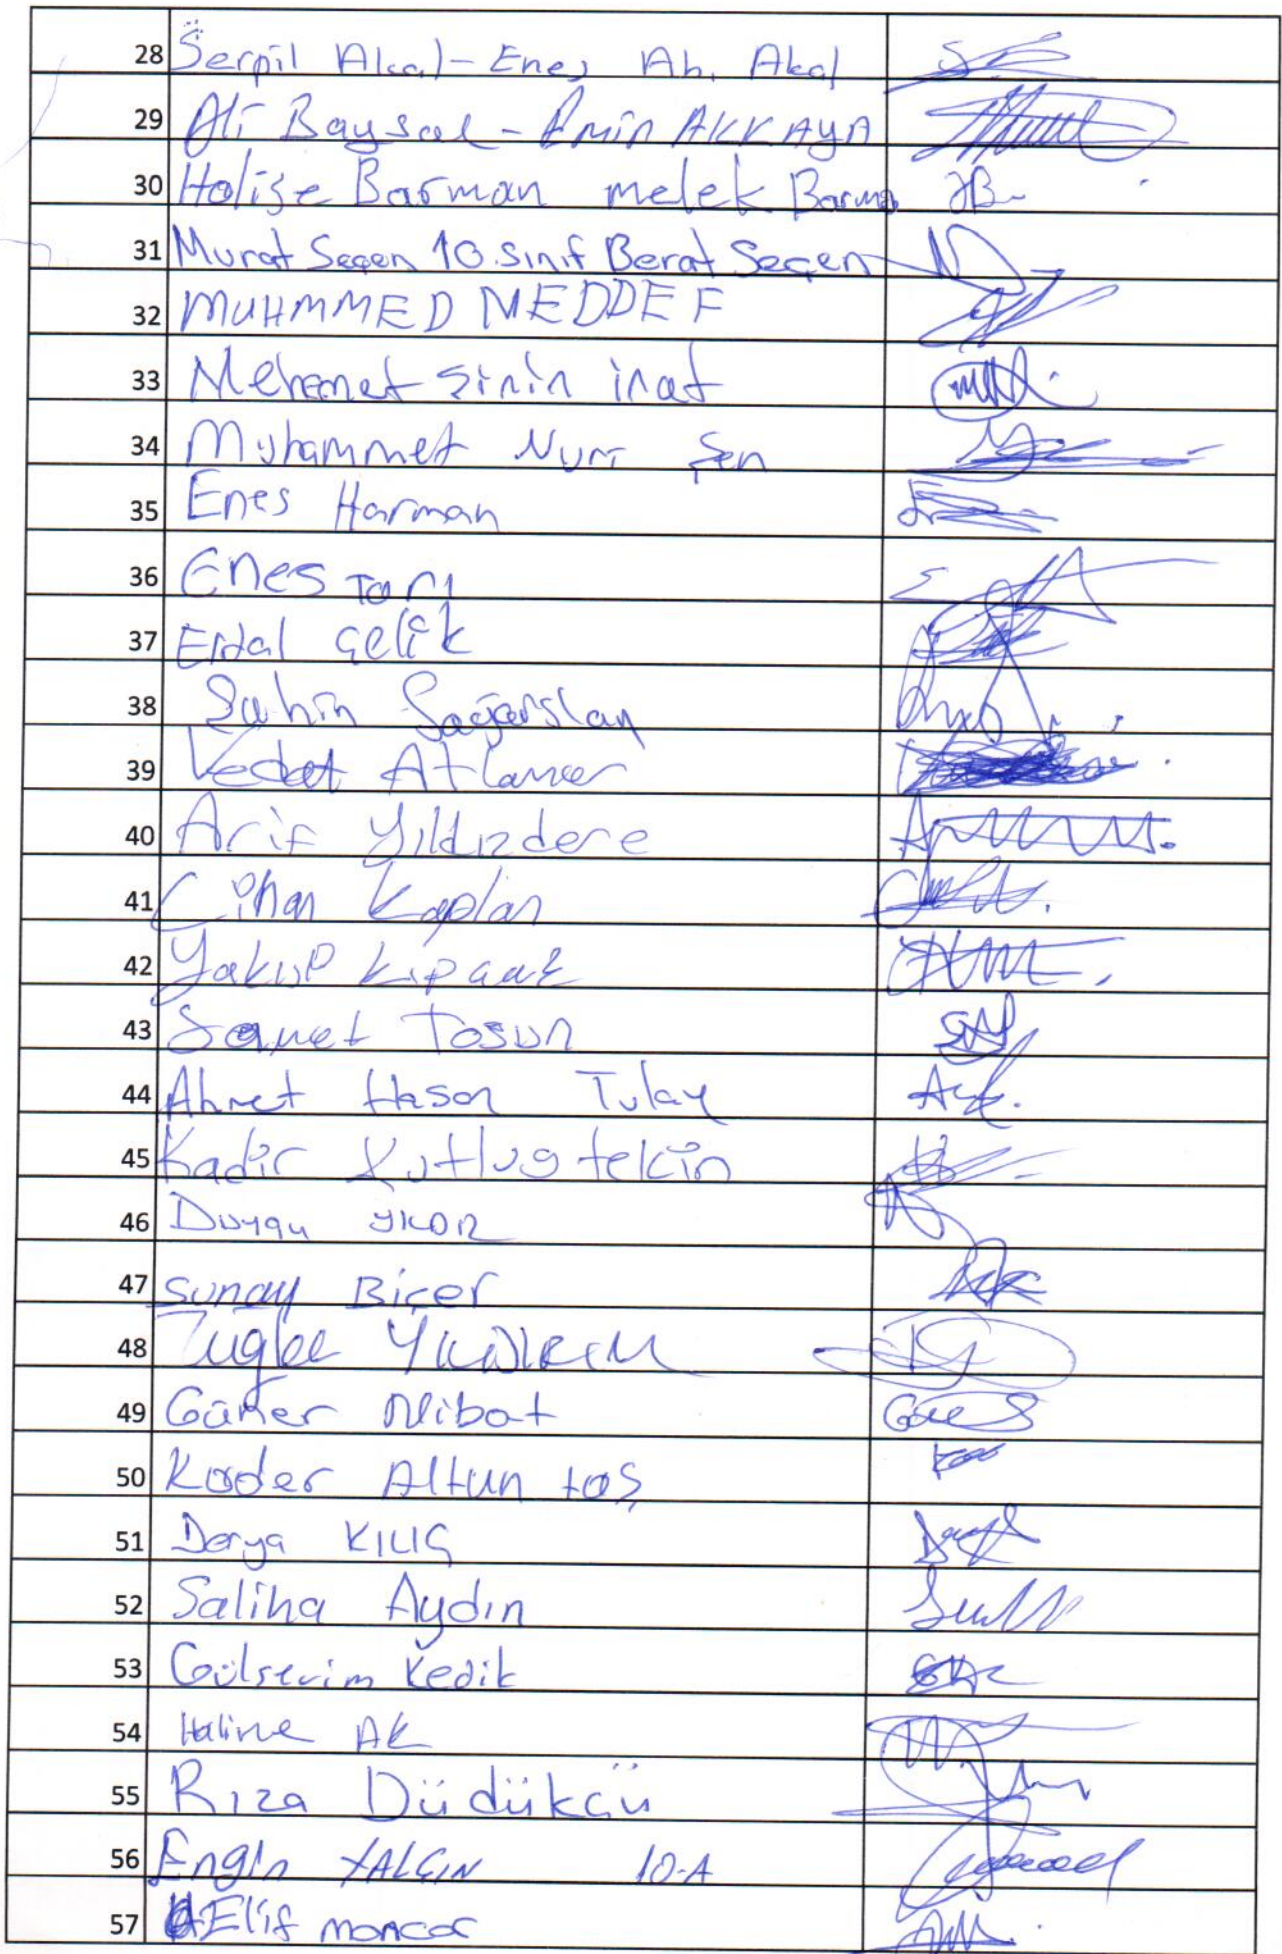 28 Serpil Akal - Enes Ah. Akal
29 Ali Baysal - Emin AKKAYA
30 Halise Barman melek Barman
31 Murat Seçen 10.sınıf Berat Seçen
32 MUHMMED MEDDEF
33 Mehemet inat
34 Muhammet Nuri Şen
35 Enes Harman
36 Enes Tarı
37 Erdal Çelik
38 Şahin Sağarslan
39 Vedat
40 Arif Yıldızdere
41 Cihan Kaplan
42 Yakup
43 Samet Tosun
44 Ahmet Hasan Tulay
45 Kadir Kutlugtekin
46 Duygu
47 Sunay Biçer
48
49 Güner Nibat
50 Kader Altun taş
51 Derya KILIÇ
52 Saliha Aydın
53 Gülsevim Kedik
54 Halime AK
55 Rıza Düdükçü
56 Engin YALÇIN 10-A
57 Elif moncar